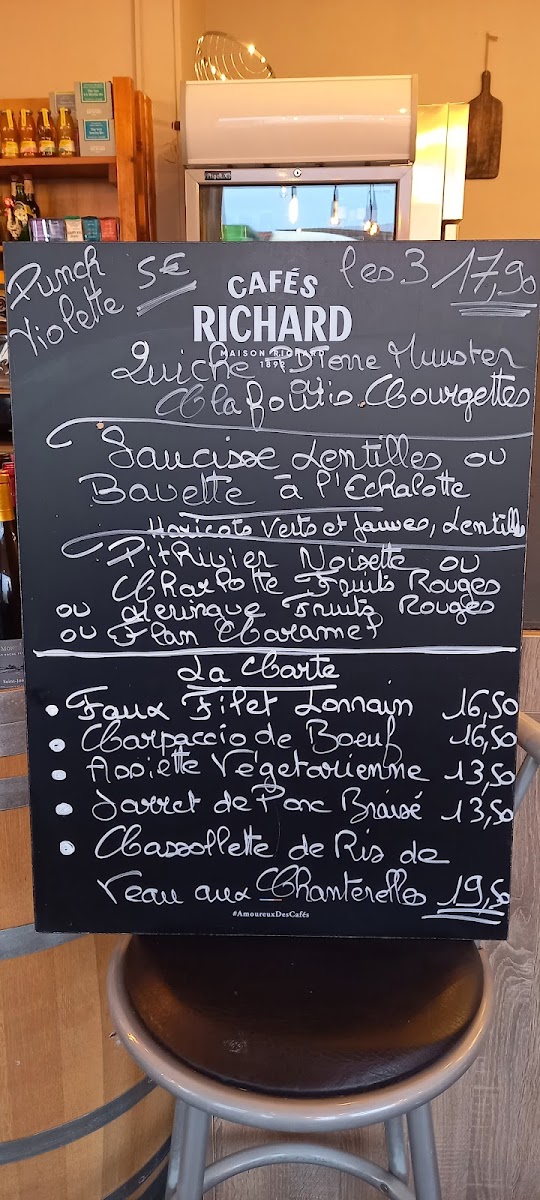 Punch
Violette 5€
les 3 17,90
CAFÉS
RICHARD
MAISON RICHARD
1892
Quiche Pomme Muunster
Clafoutis Courgettes
Saucisse Lentilles ou
Bavette à l'Echalotte
Haricots Verts et jaunes, Lentills
PitHivier Noisette ou
Charlotte Fruits Rouges
ou Meringue Fruits Rouges
ou Flan Caramel
La Carte
• Faux Filet Lorrain 16,50
• Carpaccio de Boeuf 16,50
• Assiette Végetarienne 13,50
• Jarret de Porc Braisé 13,50
• Cassollette de Ris de
Veau aux Chanterelles 19,50
#AmoureuxDesCafés